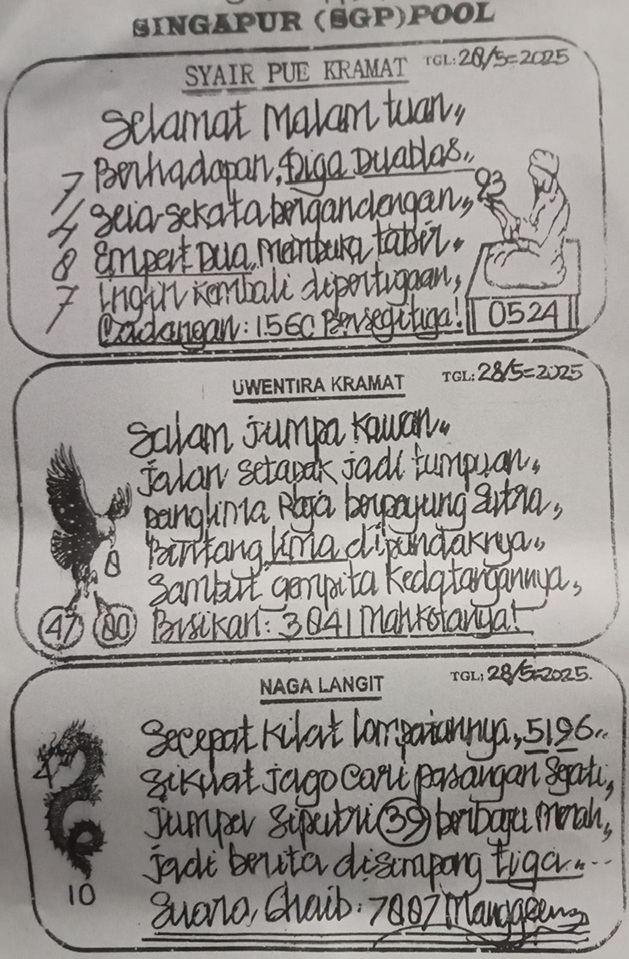 SINGAPUR (SGP) POOL
SYAIR PUE KRAMAT TGL: 28/5=2025
Selamat Malam tuan,,
7 Berhadapan, Diga Duablas,,
4 Seia-sekata bergandengan,, 93
8 Empert Dua, Membuka tabir.
7 Ingin Kembali dipertigaan,
Cadangan: 1560 Bersegitiga! 0524
UWENTIRA KRAMAT TGL: 28/5=2025
Salam jumpa Kawan,,
Jalan Setapak jadi tumpuan,,
Panglima Raja berpayung Sutra,
8 Bintang lima dipundaknya,,
Sambut gempita Kedatangannya,
47 80 Bisikan: 3841 Mahkotanya!
NAGA LANGIT TGL: 28/5=2025.
Secepat Kilat lompatannya, 5196..
4 Sikuat jago cari pasangan Sejati,
Jumpa Siputri 39 berbaju Merah,
Jadi berita disimpang tiga.....
10 Suara, Ghaib: 7887